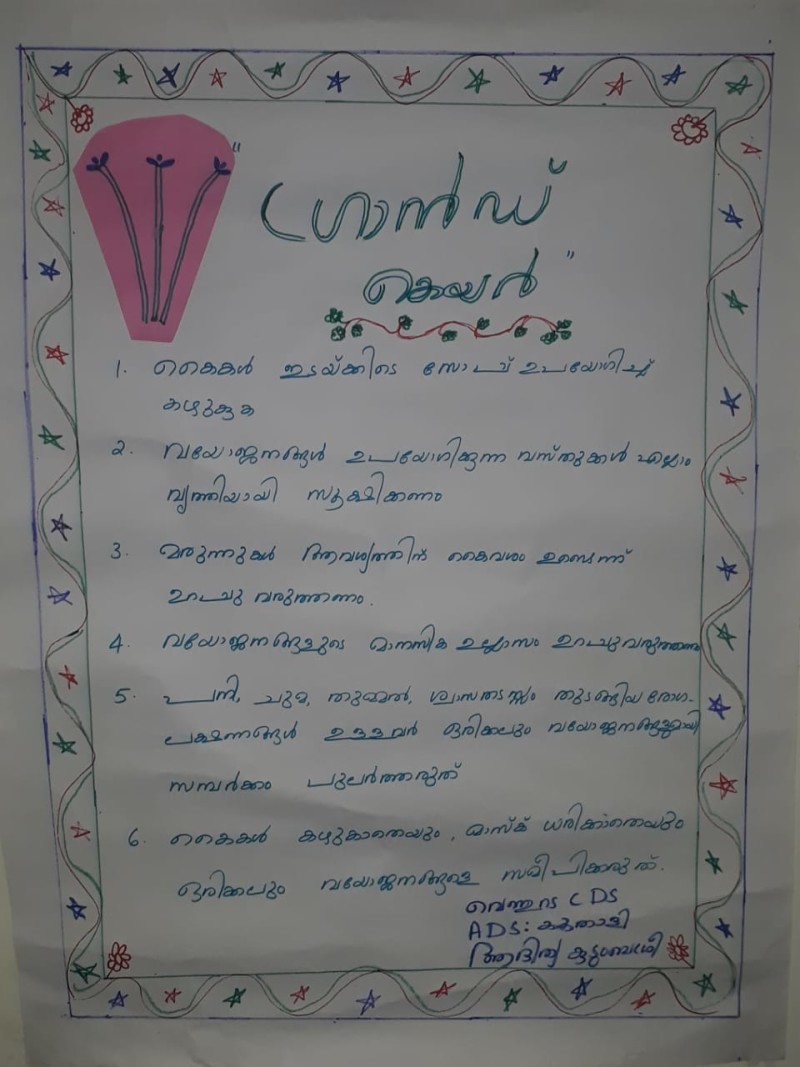 "ഗ്രാൻഡ്
കെയർ"
1. കൈകൾ ഇടയ്ക്കിടെ സോപ്പ് ഉപയോഗിച്ച്
കഴുകുക
2. വയോജനങ്ങൾ ഉപയോഗിക്കുന്ന വസ്തുക്കൾ എല്ലാം
വൃത്തിയായി സൂക്ഷിക്കണം
3. മരുന്നുകൾ ആവശ്യത്തിന് കൈവശം ഉണ്ടെന്ന്
ഉറപ്പു വരുത്തണം.
4. വയോജനങ്ങളുടെ മാനസിക ഉല്ലാസം ഉറപ്പുവരുത്തണം
5. പനി, ചുമ, തുമ്മൽ, ശ്വാസതടസ്സം തുടങ്ങിയ രോഗ-
ലക്ഷണങ്ങൾ ഉള്ളവർ ഒരിക്കലും വയോജനങ്ങളുമായി
സമ്പർക്കം പുലർത്തരുത്
6. കൈകൾ കഴുകാതെയും, മാസ്ക് ധരിക്കാതെയും
ഒരിക്കലും വയോജനങ്ങളെ സമീപിക്കരുത്.
CDS
ADS:
ആദിത്യ കുടുംബശ്രീ